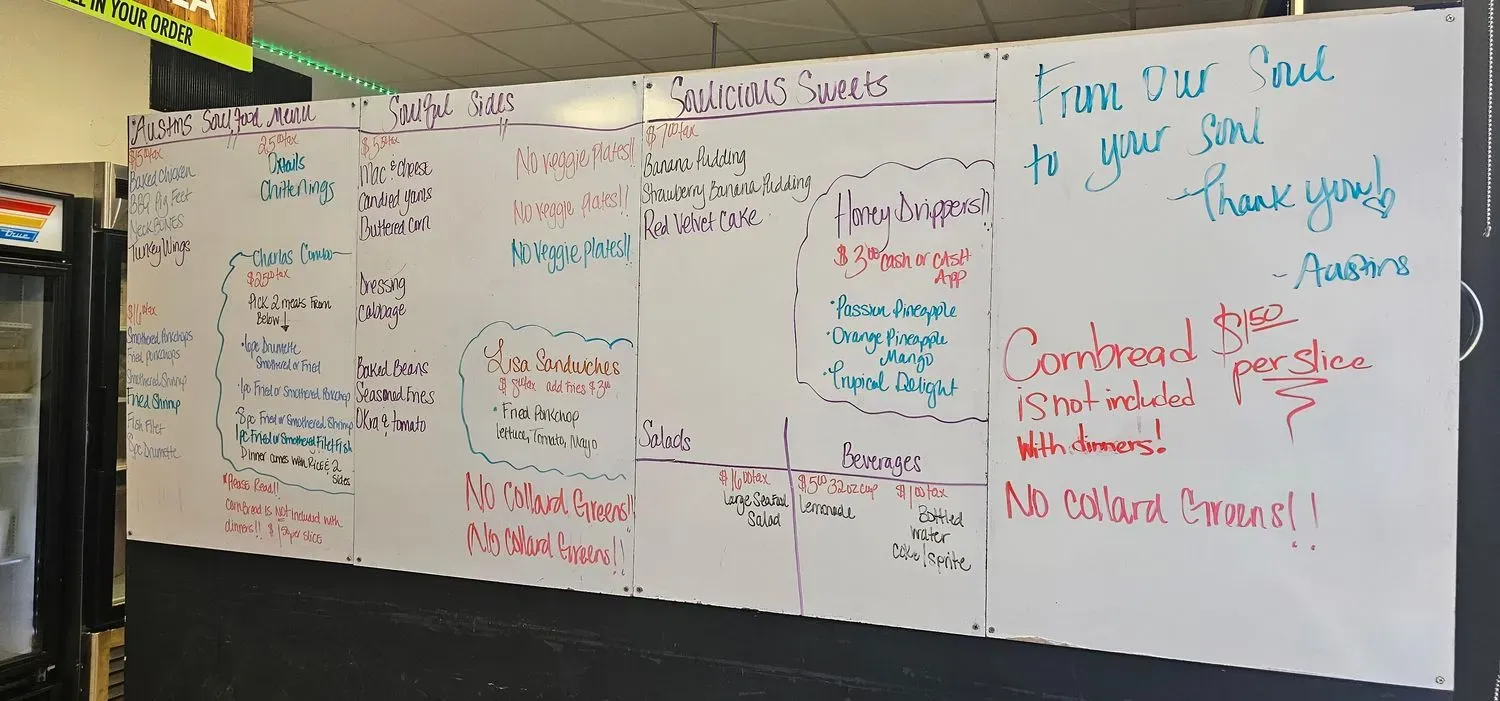 LL IN YOUR ORDER
True
Austins Soulfood Menu
$15.00+tax
Baked Chicken
BBQ Pig Feet
Neckbones
Turkey Wings
$16.00+tax
Smothered Porkchops
Fried Porkchops
Smothered Shrimp
Fried Shrimp
Fish Fillet
5pc Drumette
25.00+tax
Oxtails
Chitterlings
Charlas Combo
$25.00+tax
Pick 2 meats From
Below ↓
Drumette
Smothered or Fried
1pc Fried or Smothered Porkchop
8pc Fried or Smothered Shrimp
1pc Fried or Smothered Filet Fish
Dinner comes with Rice & 2
Sides
*Please Read!!
Cornbread is Not included with
dinners!! $1.50 per slice
Soulful Sides
$5.50+tax
Mac & Cheese
Candied Yams
Buttered Corn
Dressing
Cabbage
Baked Beans
Seasoned Fries
Okra & Tomato
No veggie Plates!!
No veggie Plates!!
No veggie Plates!!
Lisa Sandwiches
add fries $3.00
• Fried Porkchop
Lettuce, Tomato, Mayo
No Collard Greens!!
No Collard Greens!!
Soulicious Sweets
$7.00+tax
Banana Pudding
Strawberry Banana Pudding
Red Velvet Cake
Honey Drippers!!
$3.00 cash or CASH
App
• Passion Pineapple
• Orange Pineapple
Mango
• Tropical Delight
Salads
$16.00+tax
Large Seafood
Salad
Beverages
$5.00 32oz cup
Lemonade
$1.00+tax
Bottled
Water
Coke/Sprite
From Our Soul
to your Soul
-Thank you!
- Austins
Cornbread $1.50
per slice
is not included
with dinners!
No Collard Greens!!